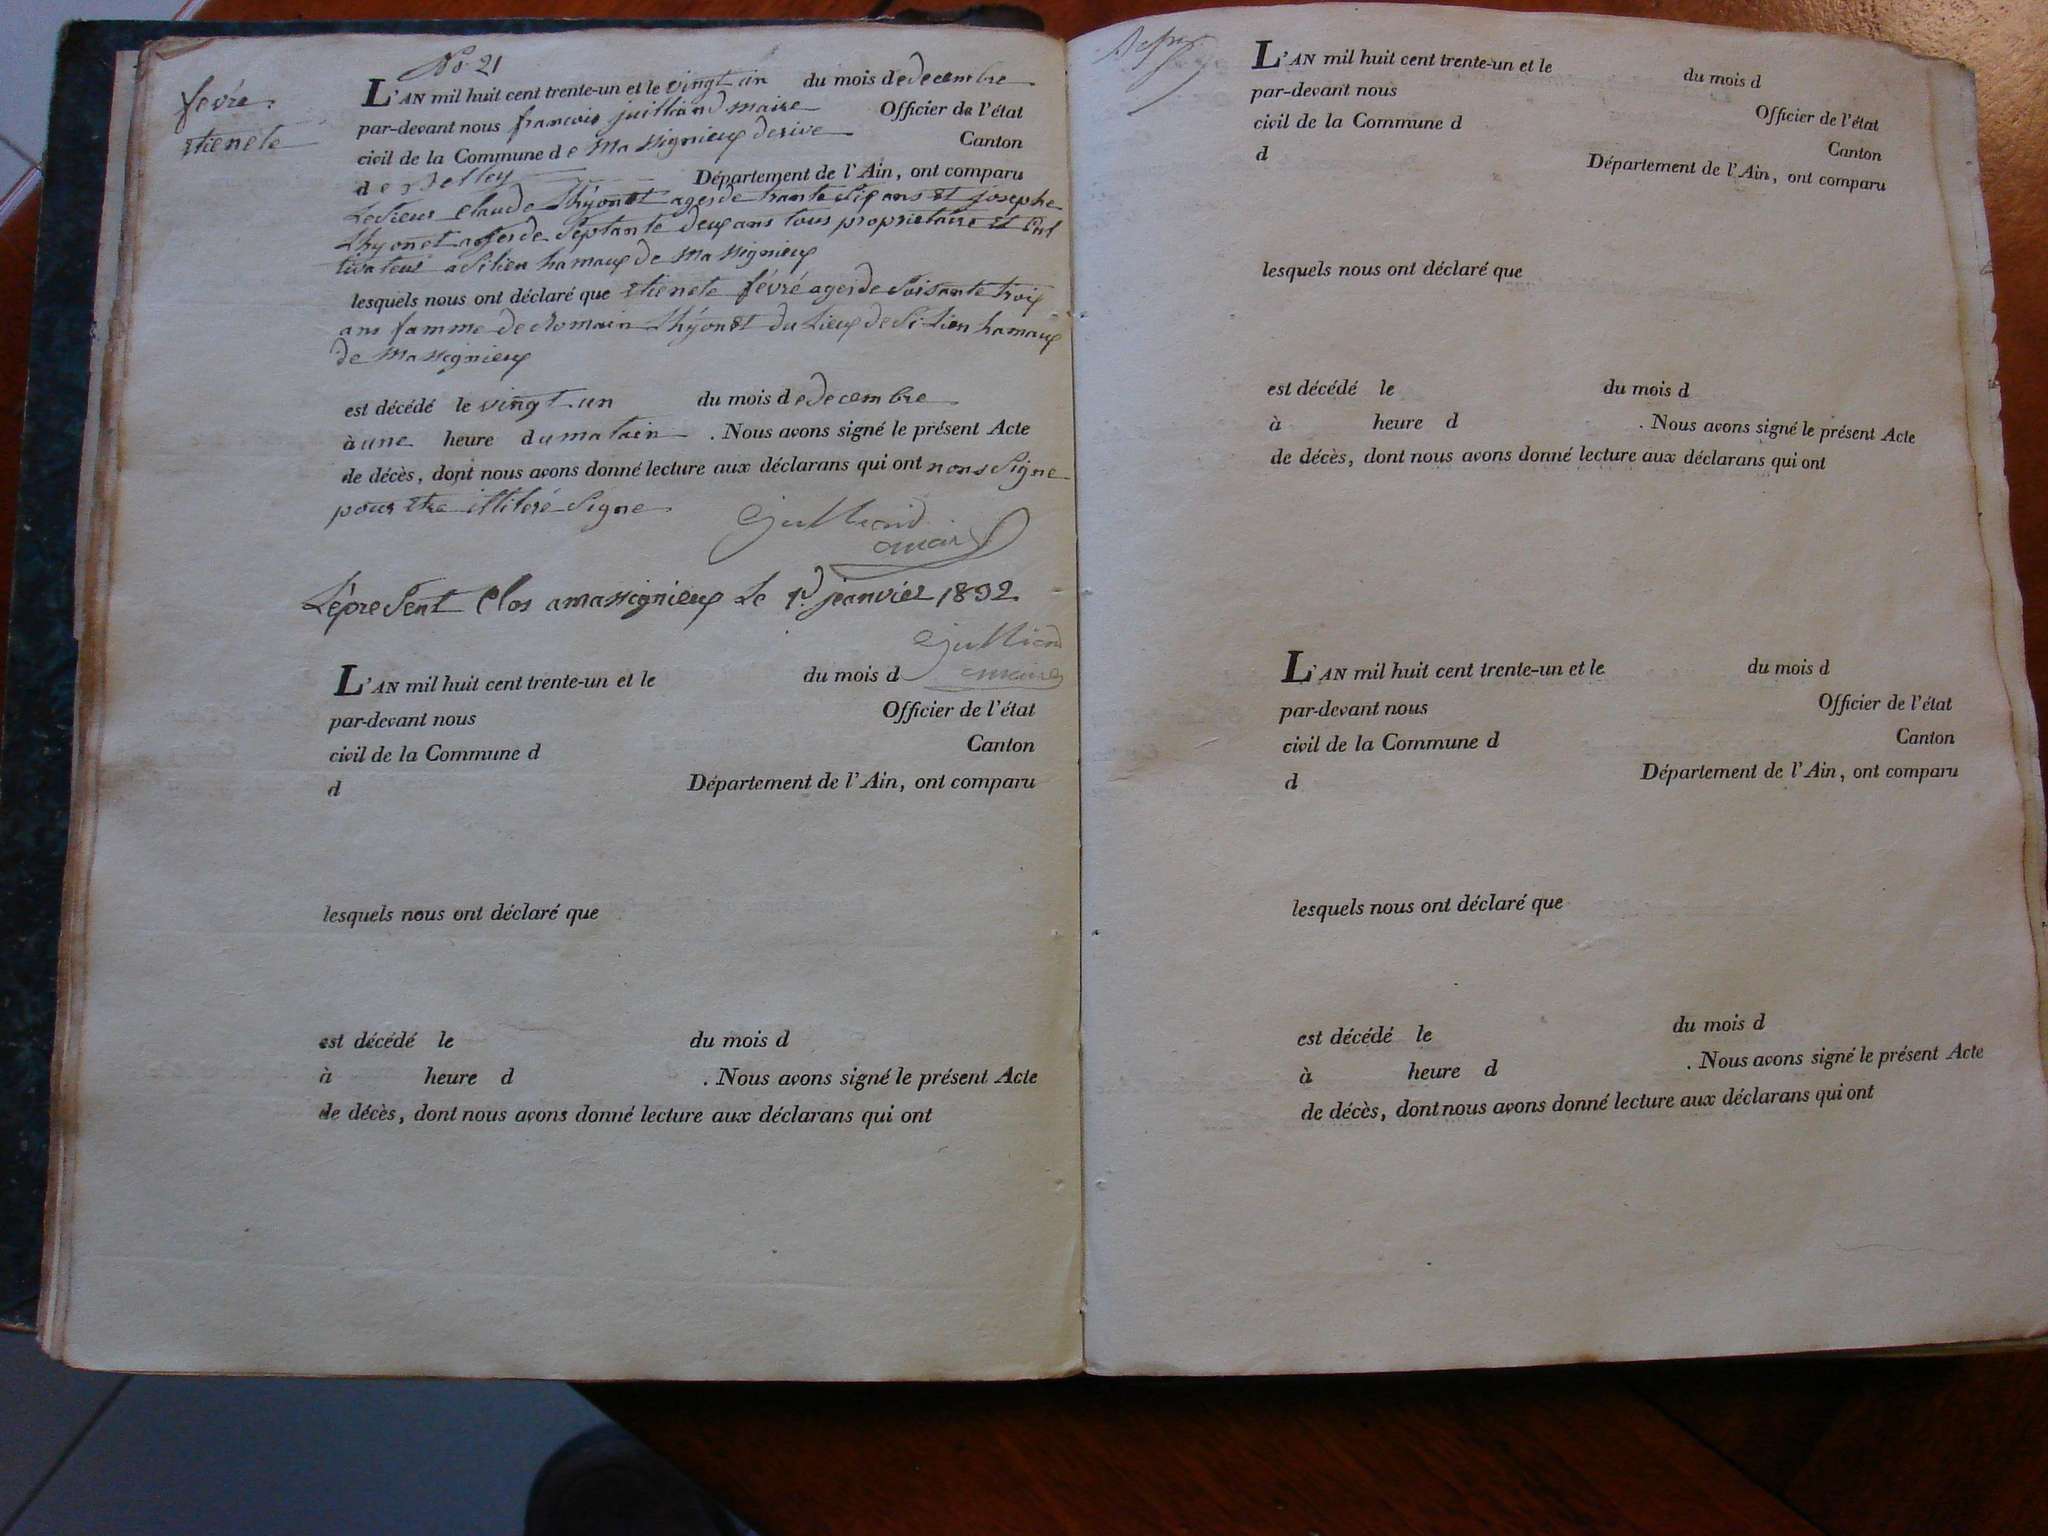 No. 21
fevré
etienete
L'AN mil huit cent trente-un et le vingt un du mois de decembre
par-devant nous francois juilliand maire Officier de l'état
civil de la Commune de Massignieux de rive Canton
de Belley Département de l'Ain, ont comparu
Le Sieur Claude Lhÿonet agers de trante Six ans et josephe
Lhyonet agers de Septante deux ans tous proprietaire et Cul
tivateur a Silien hamaux de Massignieux
lesquels nous ont déclaré que etienete févré agers de Soisante troix
ans famme de Romain Lhÿonet du Lieux de Silien hamaux
de Massignieux
est décédé le vingt un du mois de decembre
à une heure du matain . Nous avons signé le présent Acte
de décès, dont nous avons donné lecture aux déclarans qui ont nons Signe
pour etre illiteré Signe
Juilliand
maire
Le present Clos a massignieux Le 1er janvier 1832
Juilliand
maire
L'AN mil huit cent trente-un et le du mois d
par-devant nous Officier de l'état
civil de la Commune d Canton
d Département de l'Ain, ont comparu
lesquels nous ont déclaré que
est décédé le du mois d
à heure d . Nous avons signé le présent Acte
de décès, dont nous avons donné lecture aux déclarans qui ont
L'AN mil huit cent trente-un et le du mois d
par-devant nous Officier de l'état
civil de la Commune d Canton
d Département de l'Ain, ont comparu
lesquels nous ont déclaré que
est décédé le du mois d
à heure d . Nous avons signé le présent Acte
de décès, dont nous avons donné lecture aux déclarans qui ont
L'AN mil huit cent trente-un et le du mois d
par-devant nous Officier de l'état
civil de la Commune d Canton
d Département de l'Ain, ont comparu
lesquels nous ont déclaré que
est décédé le du mois d
à heure d . Nous avons signé le présent Acte
de décès, dont nous avons donné lecture aux déclarans qui ont